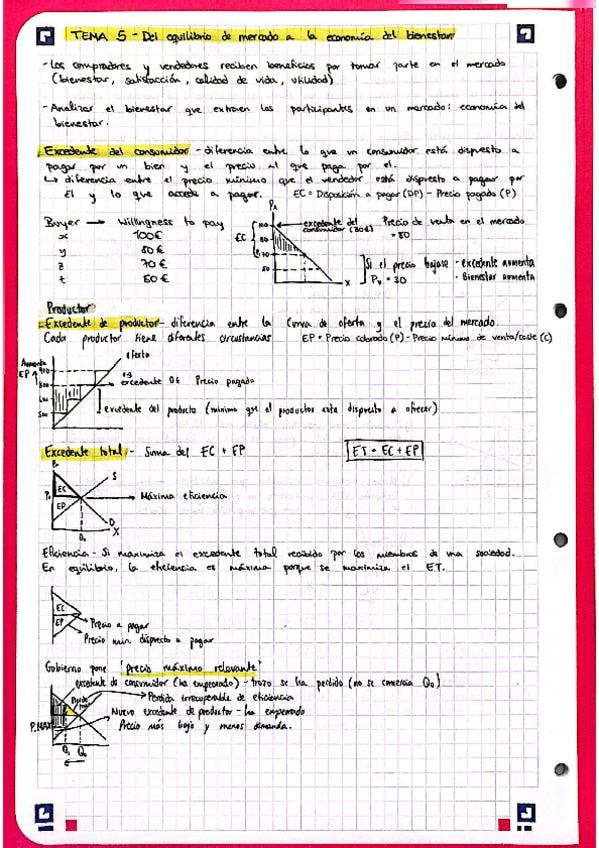 TEMA 5 - Del equilibrio de mercado a la economía del bienestar
- Los compradores y vendedores reciben beneficios por tomar parte en el mercado
(bienestar, satisfacción, calidad de vida, utilidad)
- Analizar el bienestar que extraen los participantes en un mercado: economía del
bienestar.
Excedente del consumidor - diferencia entre lo que un consumidor está dispuesto a
pagar por un bien y el precio al que paga por el.
↳ diferencia entre el precio mínimo que el vendedor está dispuesto a pagar por
El y lo que accede a pagar. EC = Disposición a pagar (DP) - Precio pagado (P)
Buyer → Willingness to pay
x 100€
y 80€
z 70€
t 50€
Px
EC
100
80
70
50
X
excedente del
consumidor
Precio de venta en el mercado
= 80
Si el precio bajase - excedente aumenta
Pv = 30 - Bienestar aumenta
Productor
- Excedente de productor - diferencia entre la curva de oferta y el precio del mercado.
Cada productor tiene diferentes circunstancias EP = Precio cobrado (P) - Precio mínimo de venta/coste (C)
Aumenta
EP ↑
oferta
excedente Precio pagado
excedente del producto (mínimo que el productor esta dispuesto a ofrecer)
Excedente total - Suma del EC + EP
ET = EC + EP
EC
EP
S
D
X
→ Máxima eficiencia
Eficiencia - Si maximiza el excedente total recibido por los miembros de una sociedad.
En equilibrio, la eficiencia es máxima porque se maximiza el ET.
EC
EP
Precio a pagar
Precio min dispuesto a pagar
Gobierno pone "precio máximo relevante"
excedente de consumidor (ha empeorado) - trozo se ha perdido (no se comercia Q0)
→ Pérdida irrecuperable de eficiencia
Nuevo excedente de productor - ha empeorado
Precio más bajo y menos demanda.
P.MAX
Q1 Q0